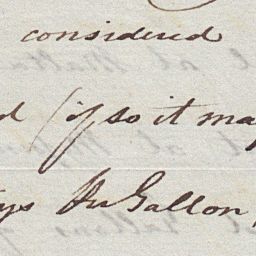 considered
d (if so it may
ys Pr Gallon,